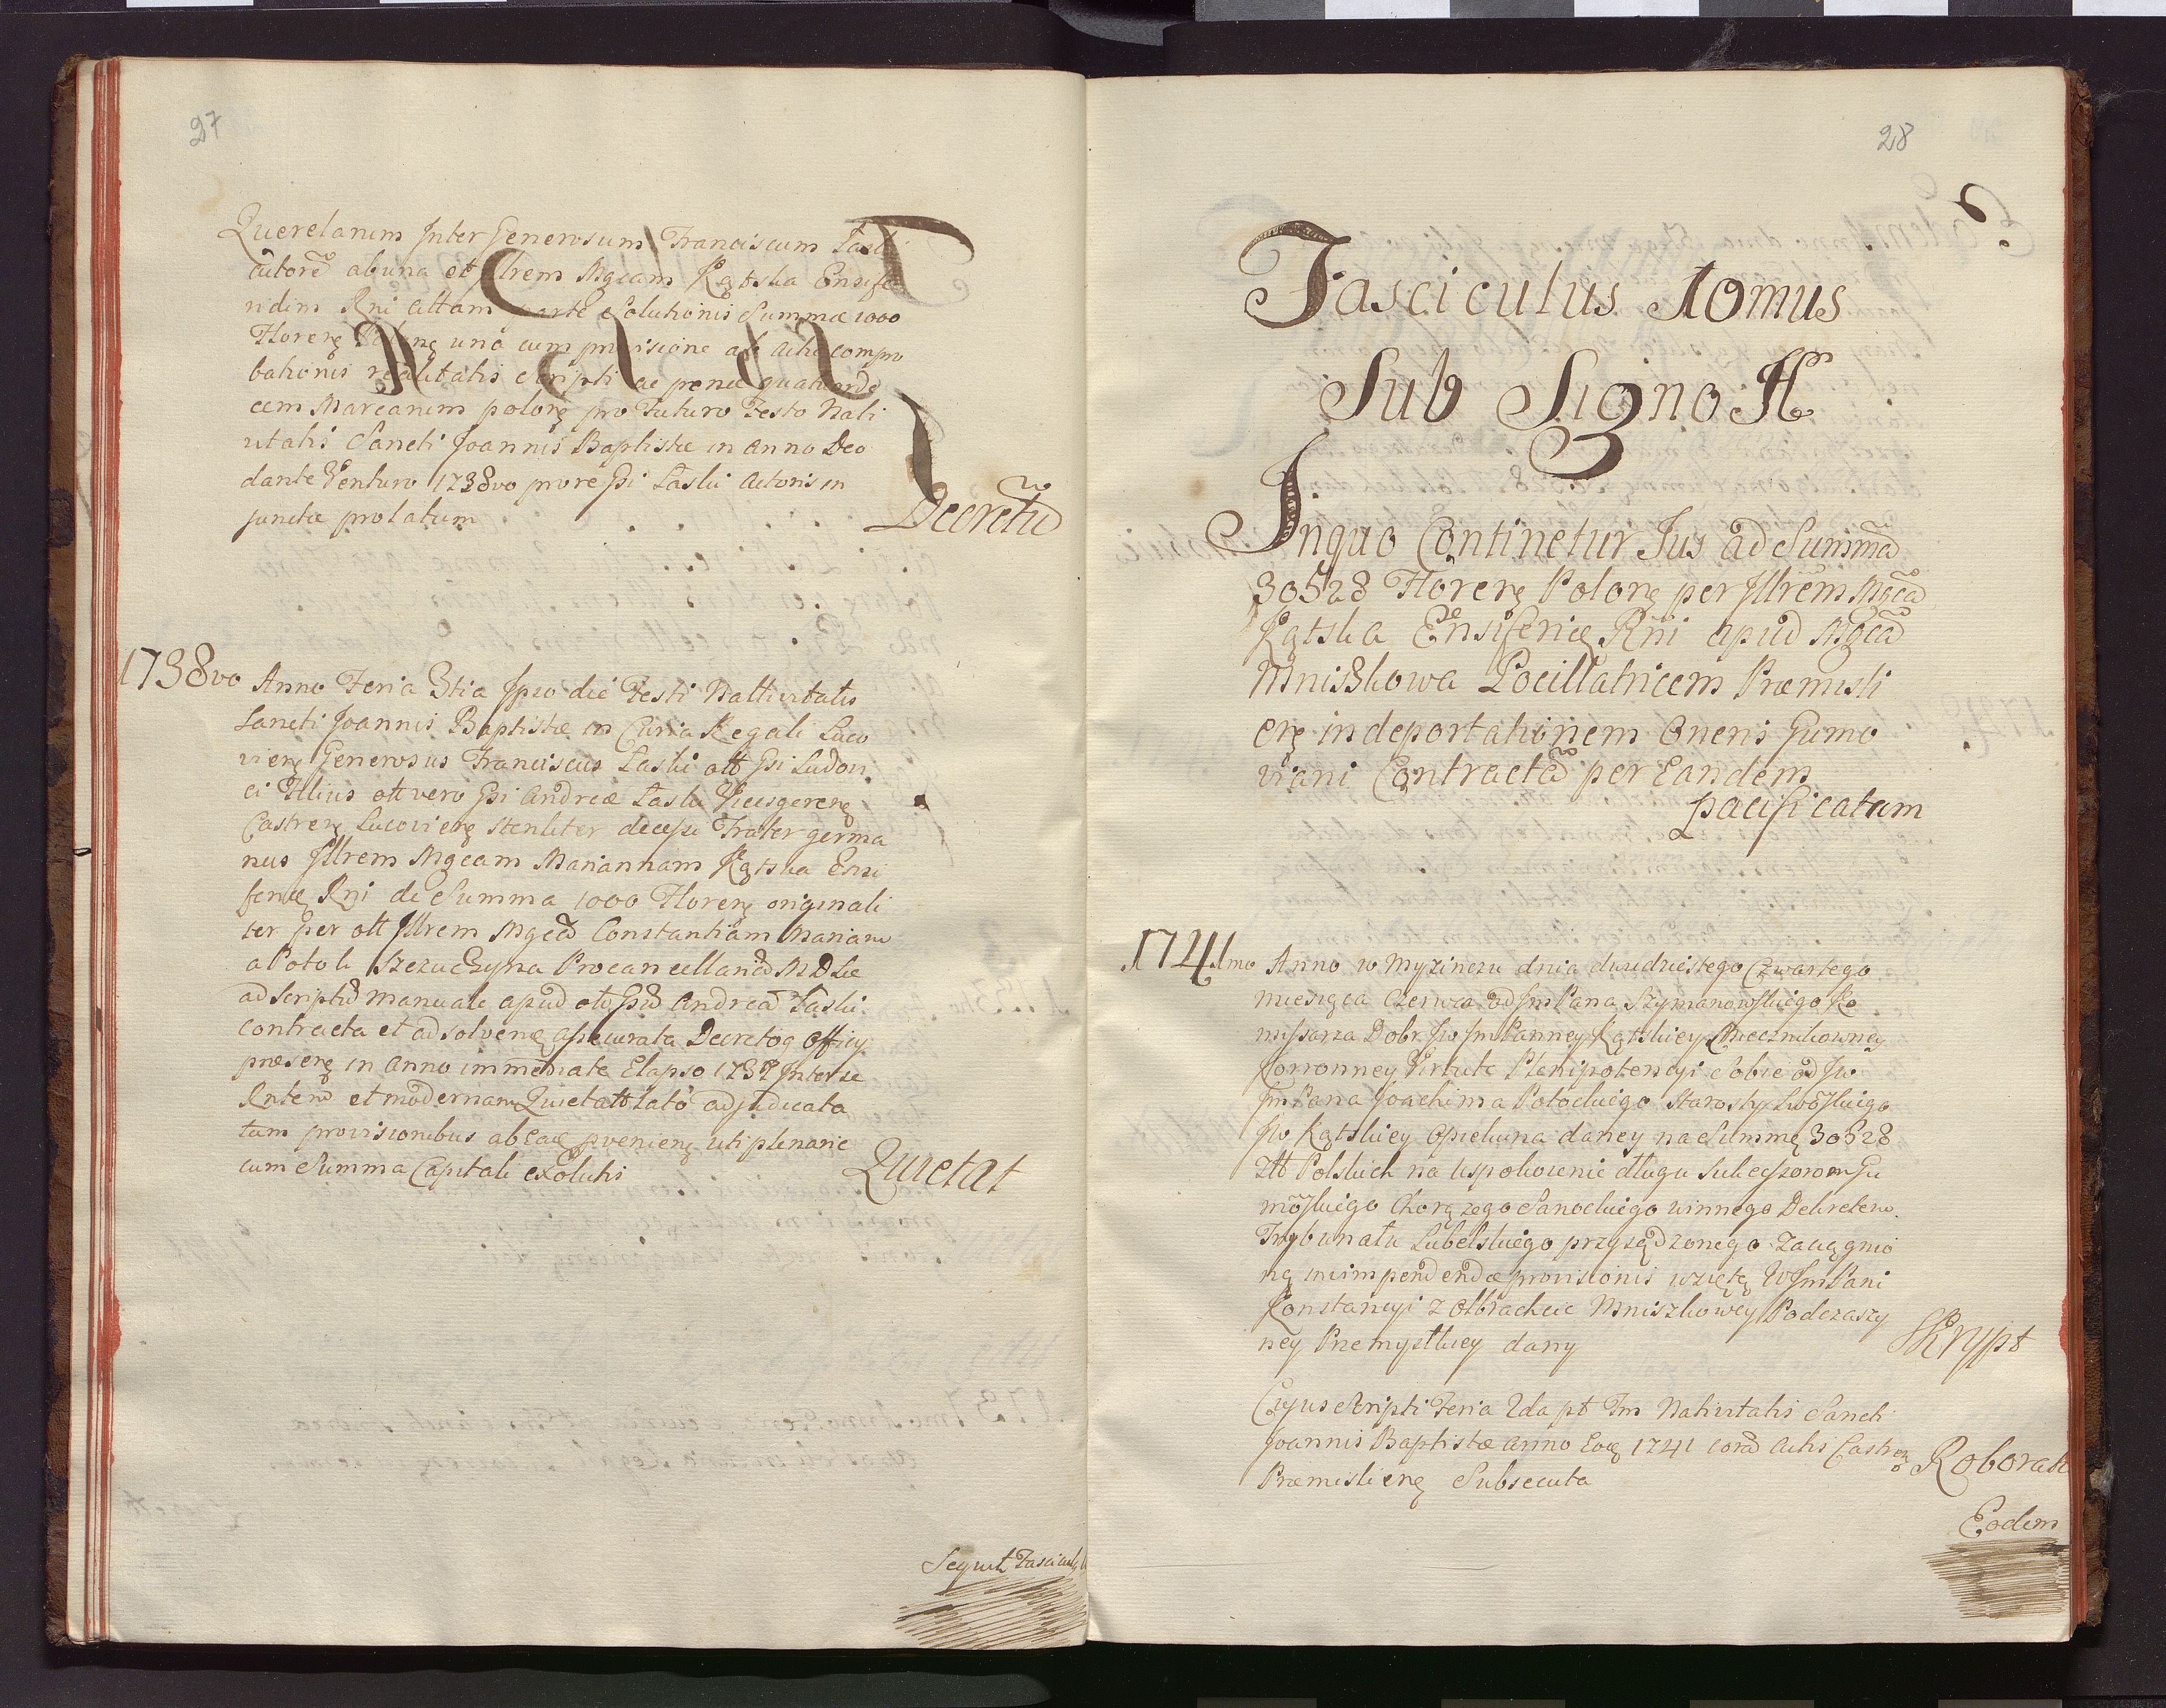 27
Querelarum Inter Generosum Franciscum Laski
actorē ab una et Illrem Mgcam Kątska Ensife
ridem Rni altam parte Solutionis Summæ 1000
Florenę Polonę una cum provisione ab actu compro
bationis realitatis scripti ac penæ quatuorde
cem Marcarum polonę pro Futuro Festo Nati
vitatis Sancti Joannis Baptistæ in anno Deo
dante Venturo 1738vo pro re Gsi Laski Actoris in
junctæ prolatum
Decretū
1738vo Anno Feria 3tia Ipso die Festi Nattivitatis
Sancti Joannis Baptistæ in Curia Regali Luco
vienę Generosus Franciscus Laski olt Gsi Ludovi
ci Filius olt vero Gsi Andreæ Laski Vicesgerenę
Castrenę Lucovienę steriliter decessi Frater germa
nus Illrem Mgcam Mariannam Kątska Ensi
feræ Rni de Summa 1000 Florenę originali
ter per olt Illrem Mgcā Constantiam Mariam
a Potok Szczuczyna Procancellariā M D Lit
ad Scriptū manuale apud olt Gsū Andreā Laski
contracta et ad solvenę assecurata Decretoq Officij
præsenę in anno immediate Elapso 1737 Inter se
Rntem et modernam Quietatt lato adjudicata
tum provisionibus ab eaę pvenienę uti plenarie
cum Summa Capitali exolutis
Quietat
Sequit Fascicul
28
Fasciculus 1omus
Sub Signo H
Inquo Continetur Jus ad Summā
30528 Florenę Polonę per Illrem Mgcā
Kątska Ensiferię Rni apud Mgcā
Mniszkowa Pocillatricem Præmisli
enę in deportationem Oneris Gumo
viani Contractā per Eandem
pacificatum
1741mo Anno w Myzincu dnia dwudziestego Czwartego
miesiąca Czerwca od Jm Pana Szymanowskiego Ko
missarza Dobr Jw Jm Panney Kątskiey Miecznikowney
Korronney Virtute Plenipotencyi Sobie od Jw
Jm Pana Joachima Potockiego Starosty Lwoskiego
Jw Kątskiey Opiekuna daney na Summę 30528
Złt Polskich na Uspokoienie długu Sukcessorom Gu
moskiego Chorązego Sanockiego winnego Dekretem
Trybunału Lubelskiego przysądzonego Zaciągnio
ną in impendendæ provisionis wziętą W Jm Pani
Konstancyi z Olbrachcic Mniszkowey Podczaszy
ney Przemyslkiey dany
Skrypt
Cujus Scripti Feria 2da pt Fm Nativitatis Sancti
Joannis Baptistæ anno Eoę 1741 corā Actis Castrenę
Præmislienę Subsecuta
Roborat
Eodem